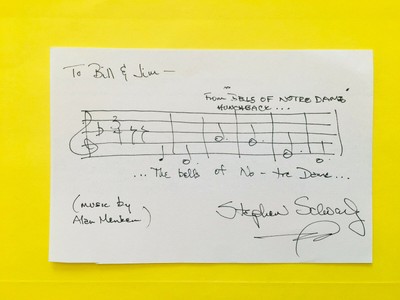 To Bill & Jim —
From "BELLS OF NOTRE DAME"
HUNCHBACK...
... The bells of No - tre Dame ...
(MUSIC by
Alan Menken)
Stephen Schwartz